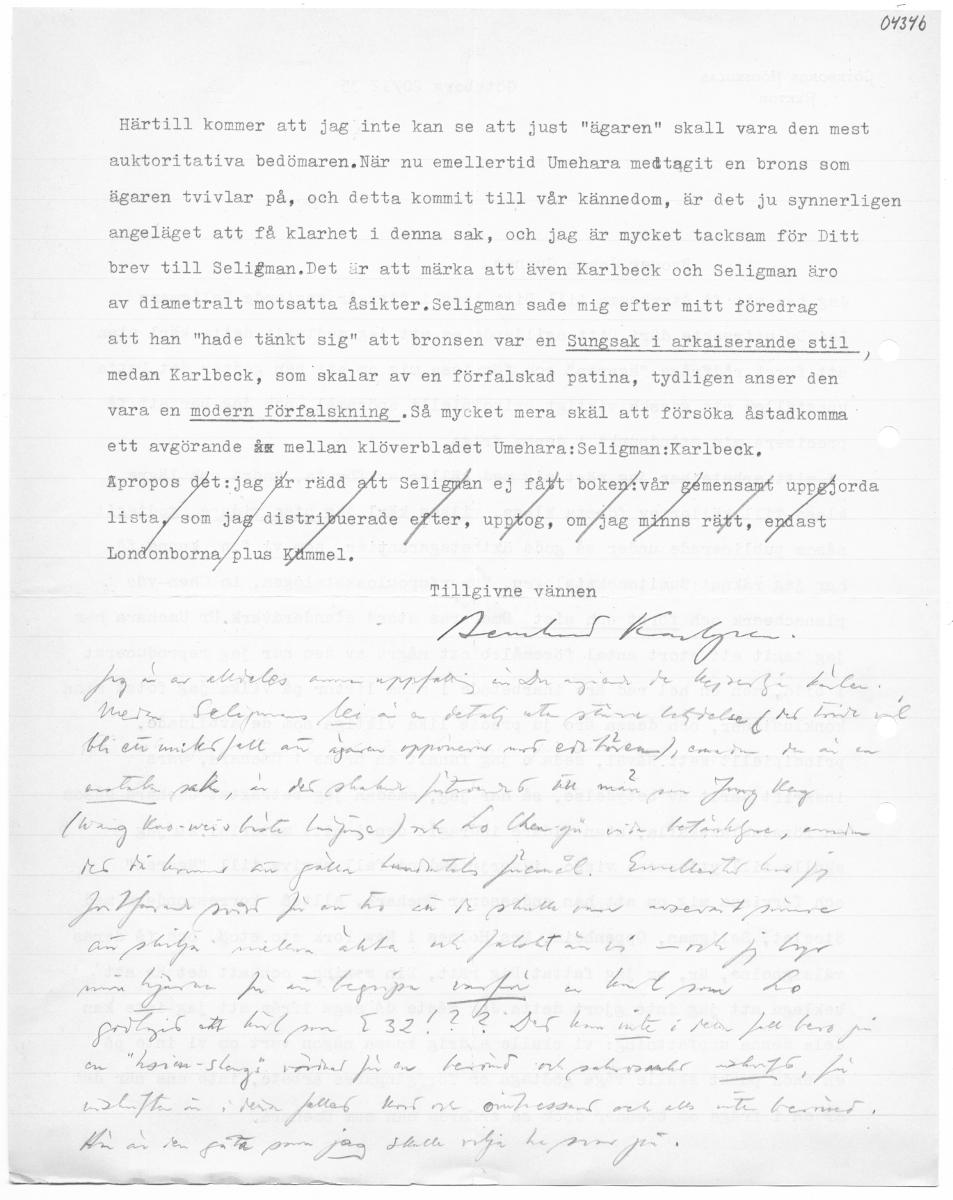 04346
Härtill kommer att jag inte kan se att just "ägaren" skall vara den mest
auktoritativa bedömaren.När nu emellertid Umehara medtagit en brons som
ägaren tvivlar på, och detta kommit till vår kännedom, är det ju synnerligen
angeläget att få klarhet i denna sak, och jag är mycket tacksam för Ditt
brev till Seligman.Det är att märka att även Karlbeck och Seligman äro
av diametralt motsatta åsikter.Seligman sade mig efter mitt föredrag
att han "hade tänkt sig" att bronsen var en Sungsak i arkaiserande stil,
medan Karlbeck, som skalar av en förfalskad patina, tydligen anser den
vara en modern förfalskning .Så mycket mera skäl att försöka åstadkomma
ett avgörande mellan klöverbladet Umehara:Seligman:Karlbeck.
Apropos det:jag är rädd att Seligman ej fått boken:vår gemensamt uppgjorda
lista, som jag distribuerade efter, upptog, om jag minns rätt, endast
Londonborna plus Kümmel.
Tillgivne vännen
Bernhard Karlgren.
Jag är av alldeles annan uppfattning än Du
Medan Seligman är en detalj utan större betydelse (det torde väl
bli ett unikt fall att ägaren opponerar mot editören), en
enstaka sak, är det till män som Jung Keng
(Wang Kuo-wei's bäste lärjunge) och Lo Chen-yü vida betänkligare,
det då kommer att gälla hundratals föremål. Emellertid har jag
fortfarande svårt för att tro att de skulle vara sämre
att skilja mellan äkta och falskt än vi – och jag bryr
min hjärna för att begripa varför en karl som Lo
godtagit ett kärl som E 32!?? Det kan inte i detta fall bero på
en "hsien-sheng's" vördnad för en berömd och inskrift, för
inskriften är i detta fallet kort och ointressant och alls inte berömd.
Här är den gåta som jag skulle vilja ha svar på.